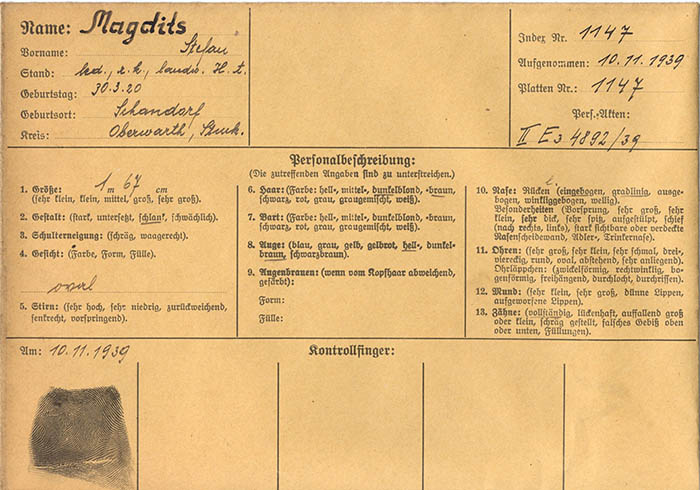 Name: Magdits
Vorname: Stefan
Stand: led., r. k., landw. H. A.
Geburtstag: 30.3.20
Geburtsort: Schandorf
Kreis: Oberwarth, Stmk.
Index Nr. 1147
Aufgenommen: 10.11.1939
Platten Nr.: 1147
Pers.-Akten:
II E3 4892/39
Personalbeschreibung:
(Die zutreffenden Angaben sind zu unterstreichen.)
1. Größe: 1 m 67 cm
(sehr klein, klein, mittel, groß, sehr groß).
2. Gestalt: (stark, untersetzt, schlank, schwächlich).
3. Schulterneigung: (schräg, waagerecht).
4. Gesicht: (Farbe, Form, Fülle).
oval
5. Stirn: (sehr hoch, sehr niedrig, zurückweichend,
senkrecht, vorspringend).
6. Haar: (Farbe: hell-, mittel-, dunkelblond, -braun,
schwarz, rot, grau, graugemischt, weiß).
7. Bart: (Farbe: hell-, mittel-, dunkelblond, -braun,
schwarz, rot, grau, graugemischt, weiß).
8. Auge: (blau, grau, gelb, gelbrot, hell-, dunkel-
braun, schwarzbraun).
9. Augenbrauen: (wenn vom Kopfhaar abweichend,
gefärbt):
Form:
Fülle:
10. Nase: Rücken (eingebogen, gradlinig, ausge-
bogen, winkliggebogen, wellig).
Besonderheiten (Vorsprung, sehr groß, sehr
klein, sehr dick, sehr spitz, aufgestülpt, schief
(nach rechts, links), stark sichtbare oder verdeckte
Nasenscheidewand, Adler-, Trinkernase).
11. Ohren: (sehr groß, sehr klein, sehr schmal, drei-
viereckig, rund, oval, abstehend, sehr anliegend).
Ohrläppchen: (zwickelförmig, rechtwinklig, bo-
genförmig, freihängend, durchlocht, durchrissen).
12. Mund: (sehr klein, sehr groß, dünne Lippen,
aufgeworfene Lippen).
13. Zähne: (vollständig, lückenhaft, auffallend groß
oder klein, schräg gestellt, falsches Gebiß oben
oder unten, Füllungen).
Am: 10.11.1939
Kontrollfinger: